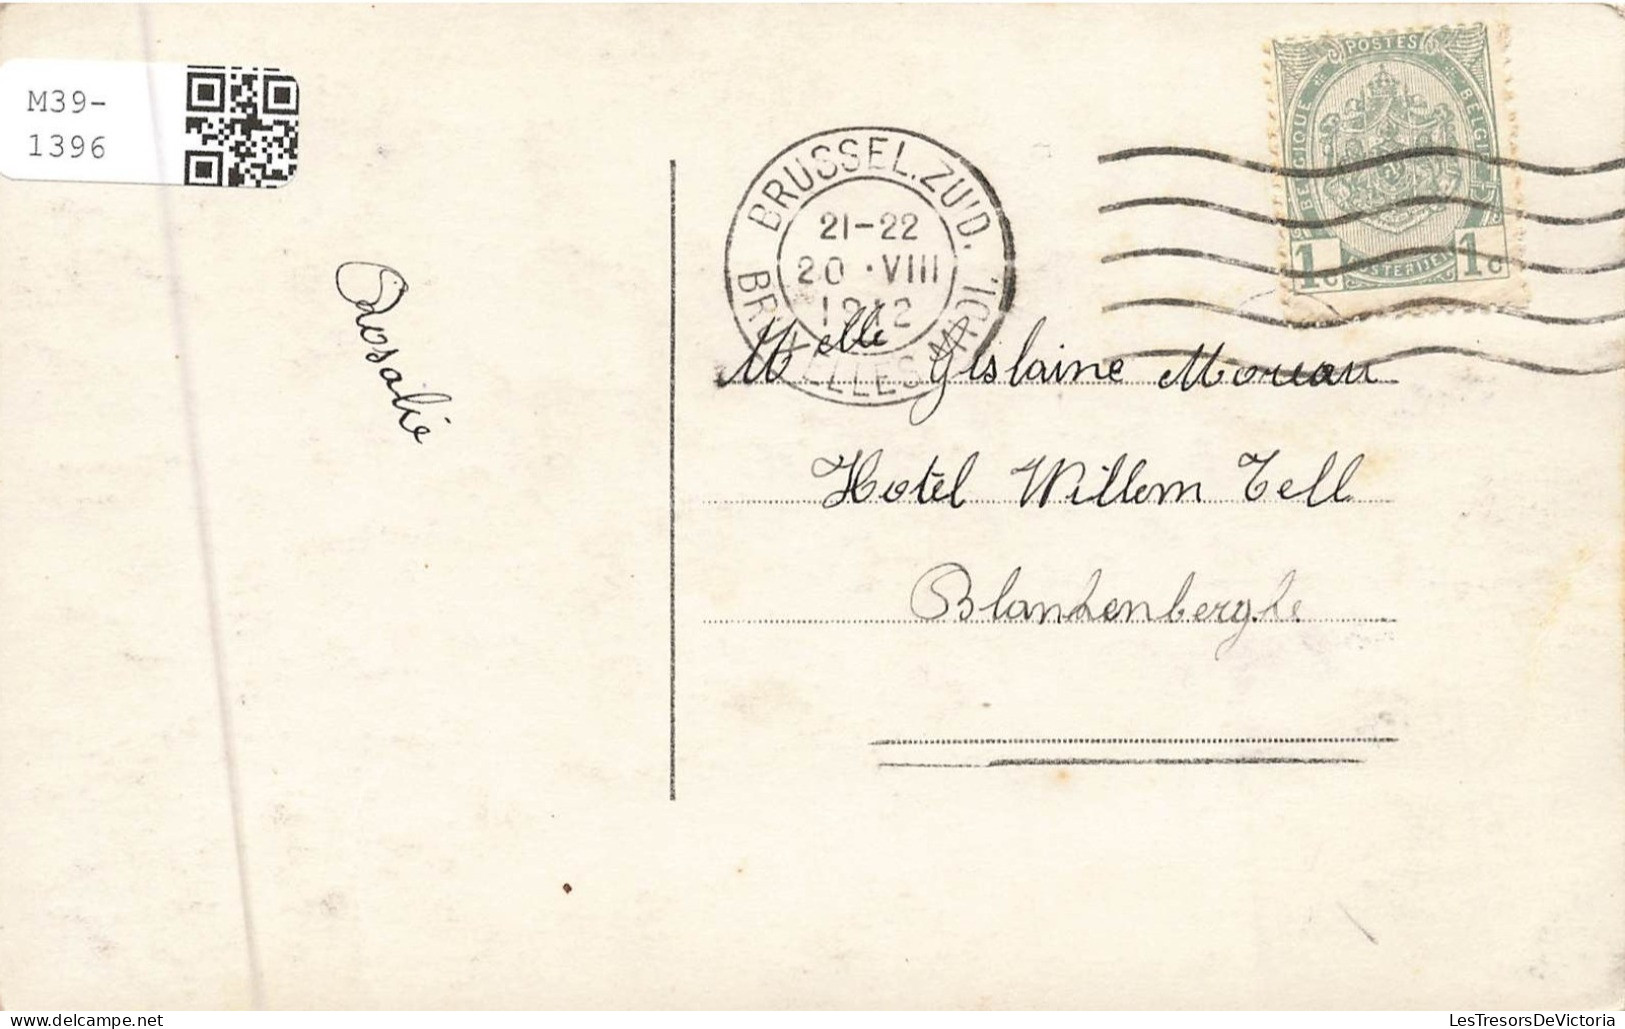 M39-
1396
POSTES
BELGIQUE
BELGIË
1c
POSTERIJEN
1c
BRUSSEL.ZUID.
21-22
20 · VIII
1912
BRUXELLES MIDI.
Rosalie
Melle Gislaine Moreau
Hotel Willem Tell
Blankenberghe
LesTresorsDeVictoria